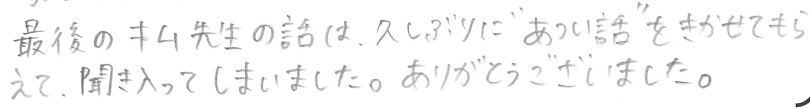 最後のキム先生の話は、久しぶりに"あつい話"をきかせてもら
えて、聞き入ってしまいました。ありがとうございました。